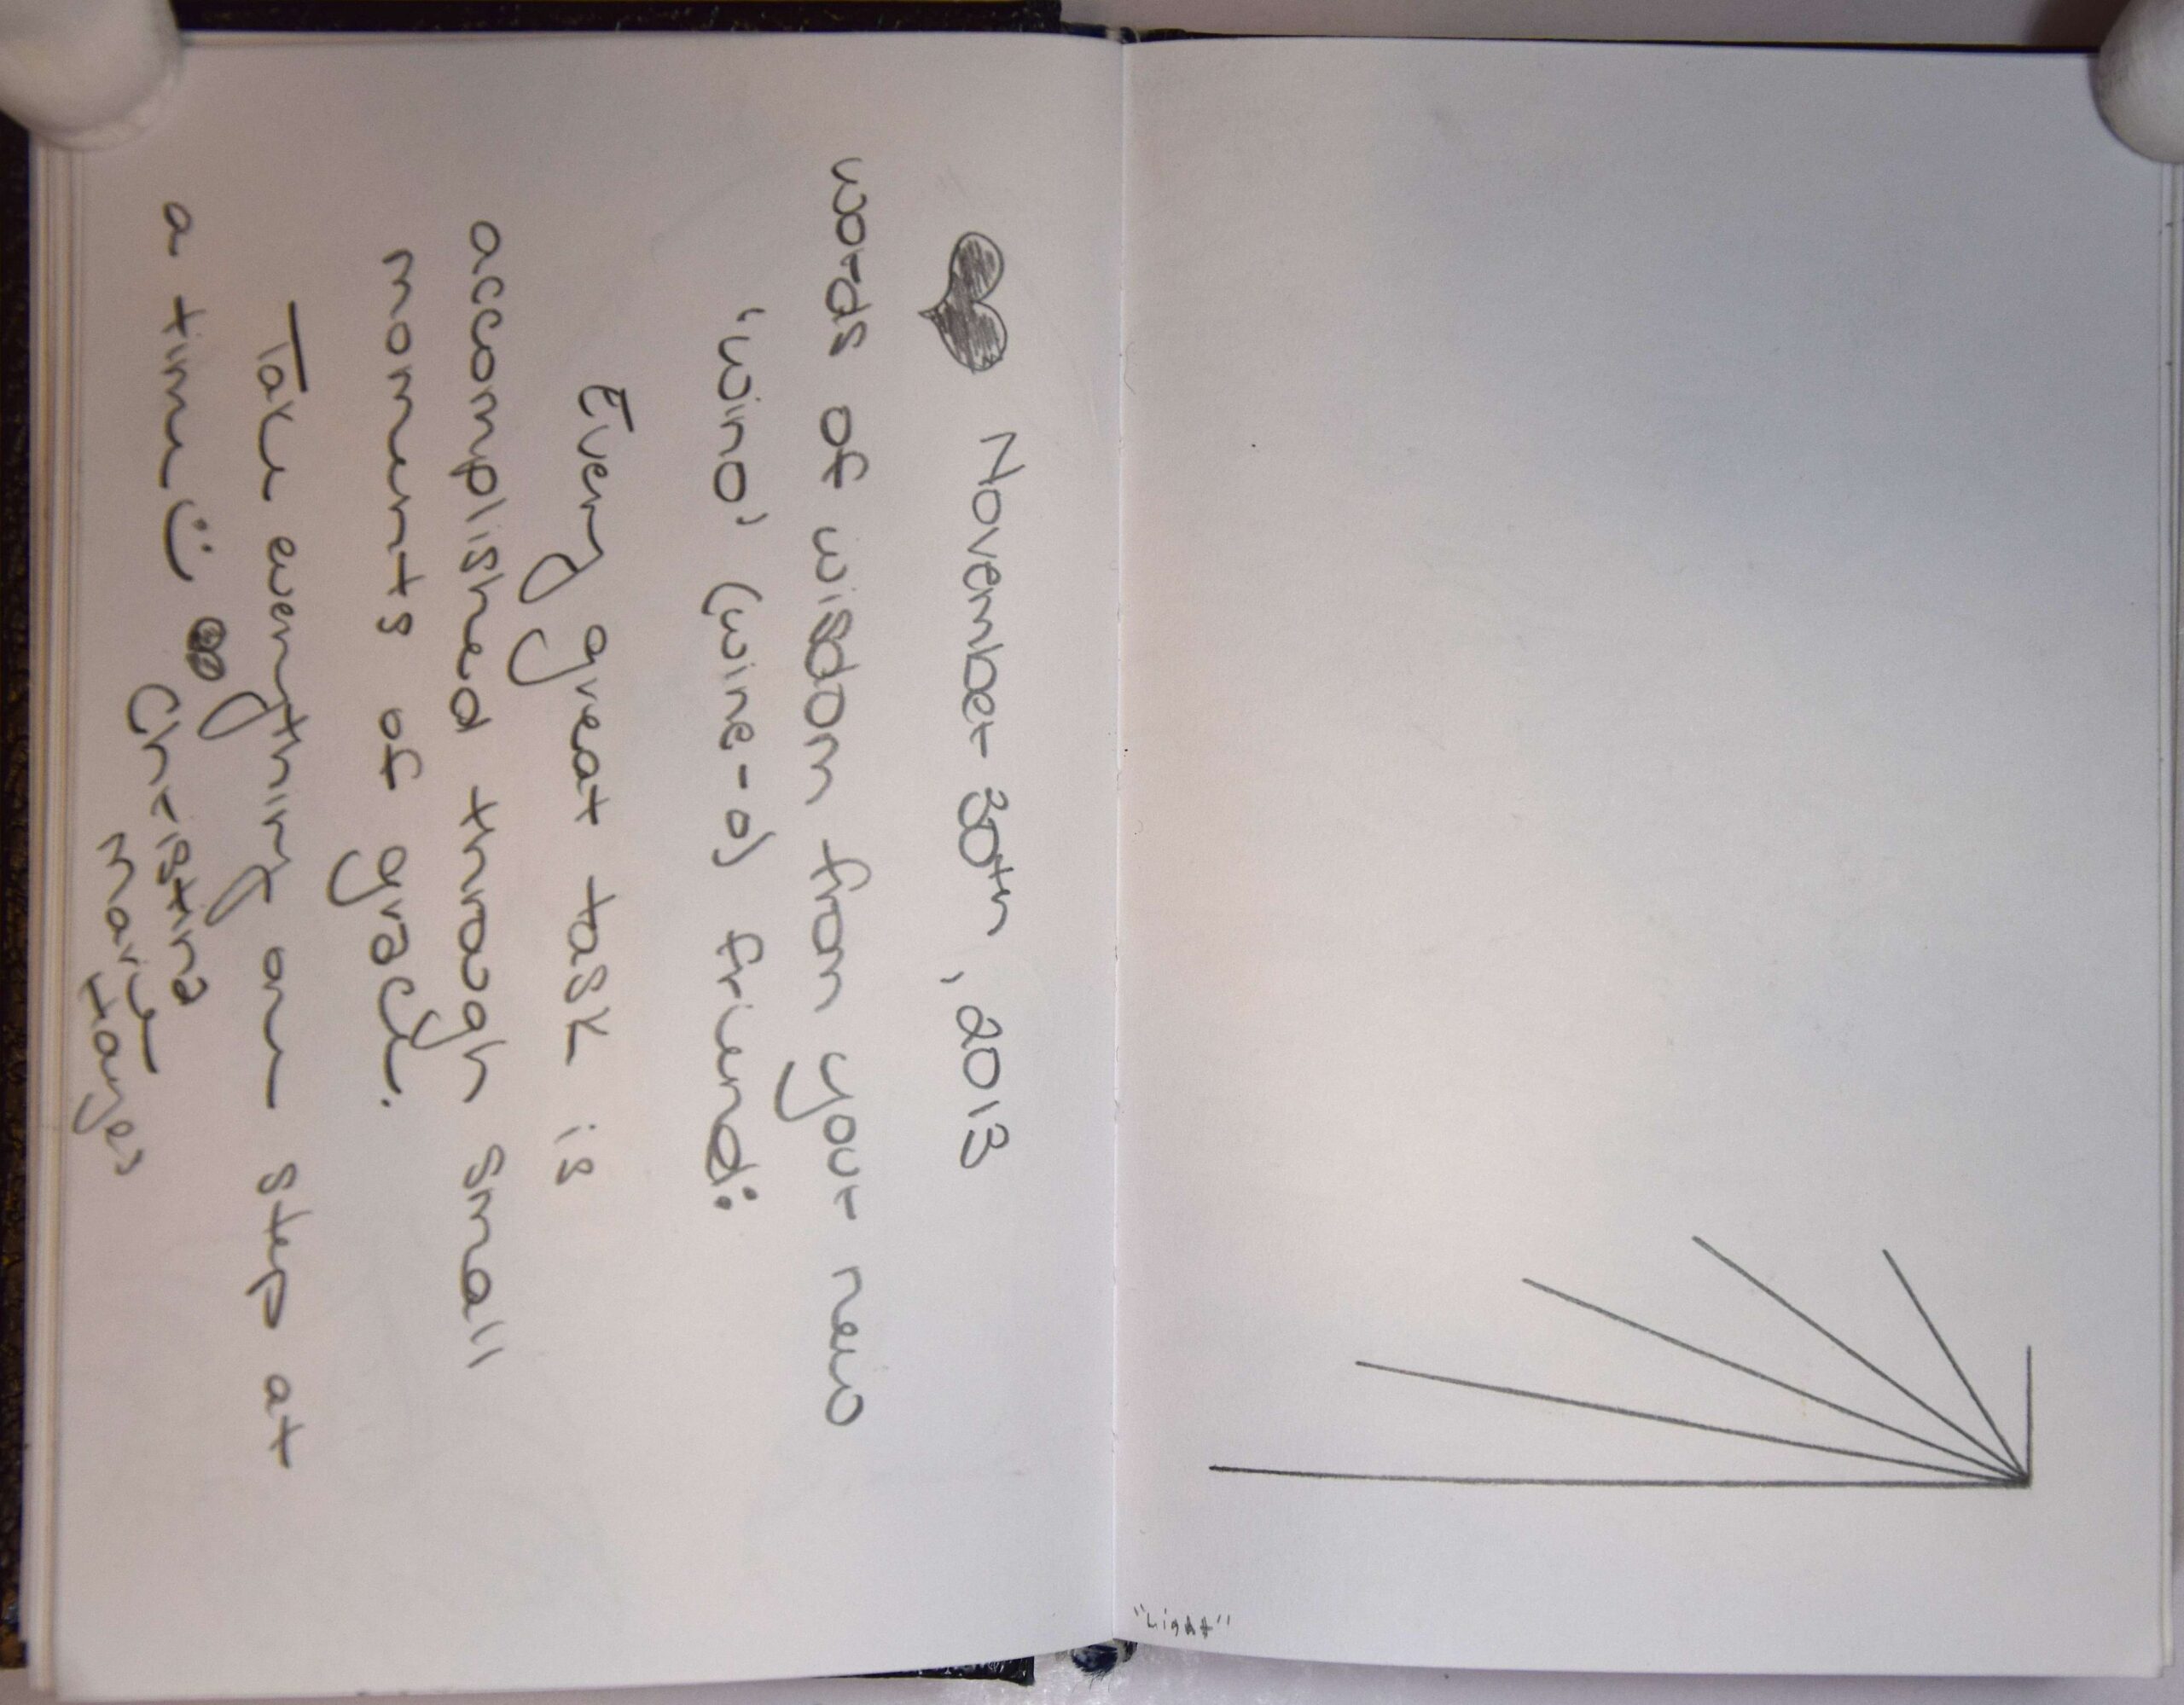 November 30th, 2013
words of wisdom from your new
"wino" (wine-o) friend:
Every great task is
accomplished through small
moments of grace.
Take everything one step at
a time :)
Christina
Marie
Hayes
"Light"